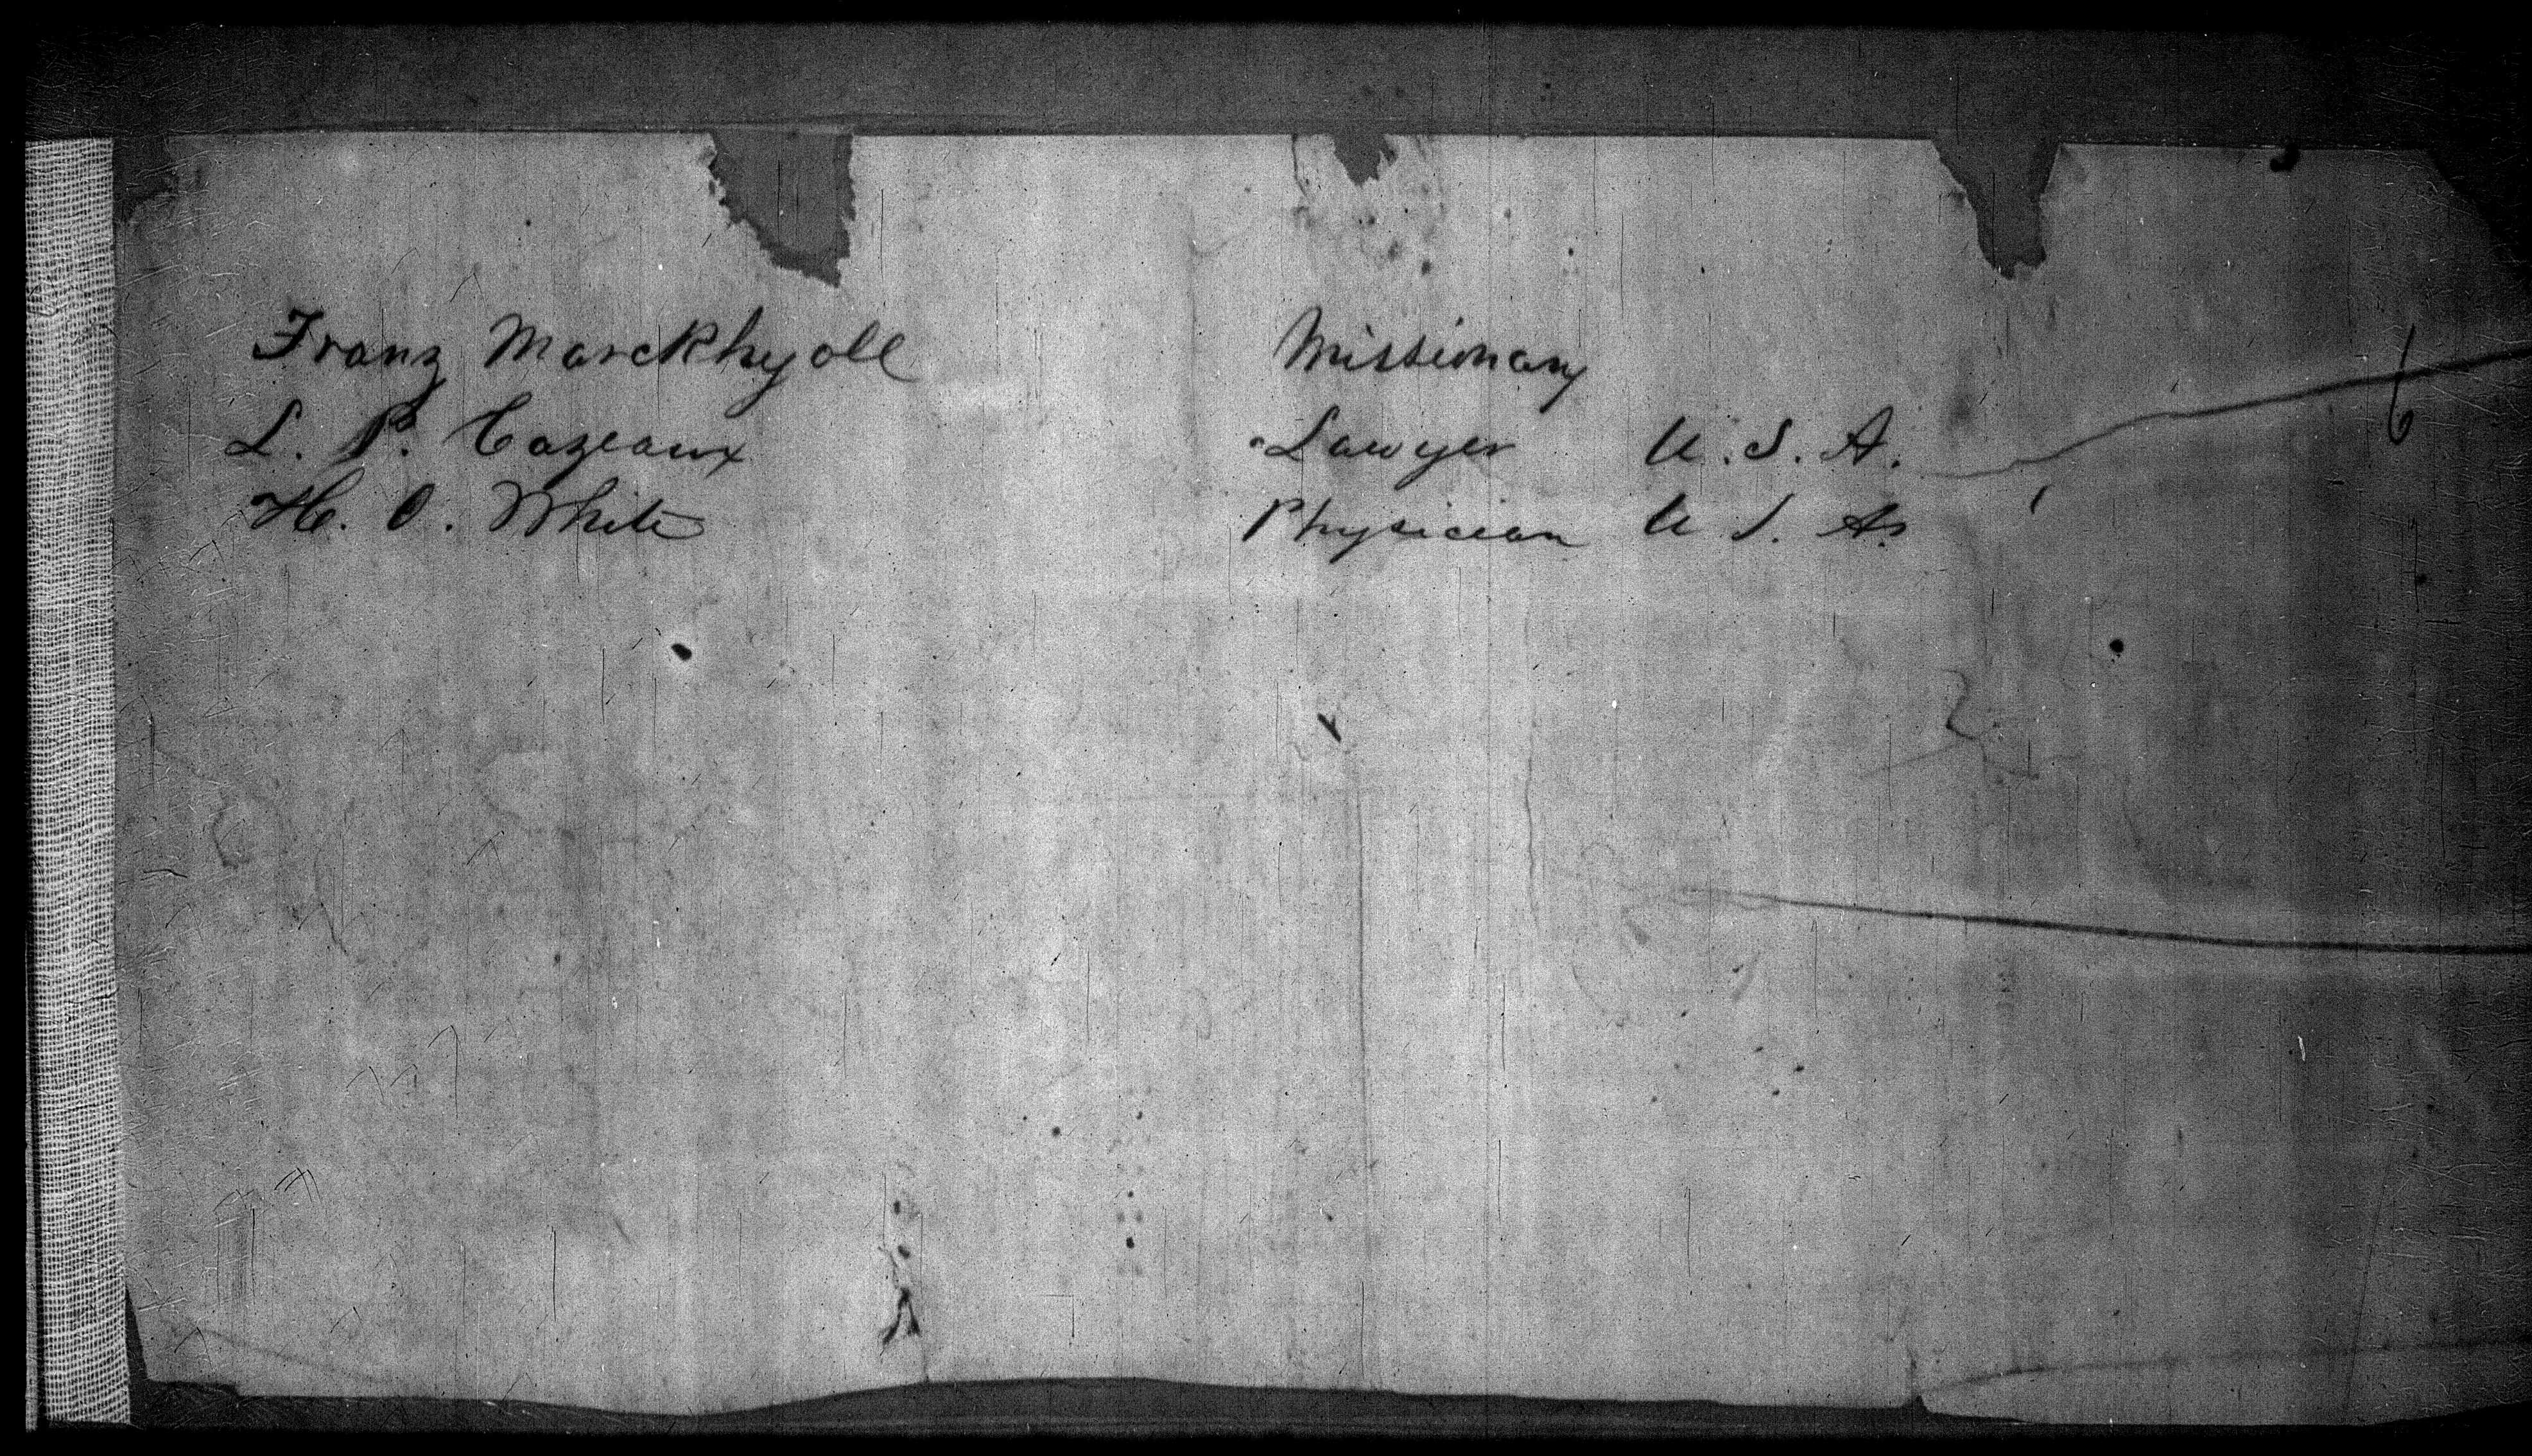 Franz Marckhyoll Missionary
L. P. Cazeaux Lawyer U. S. A.
H. O. White Physician U. S. A.